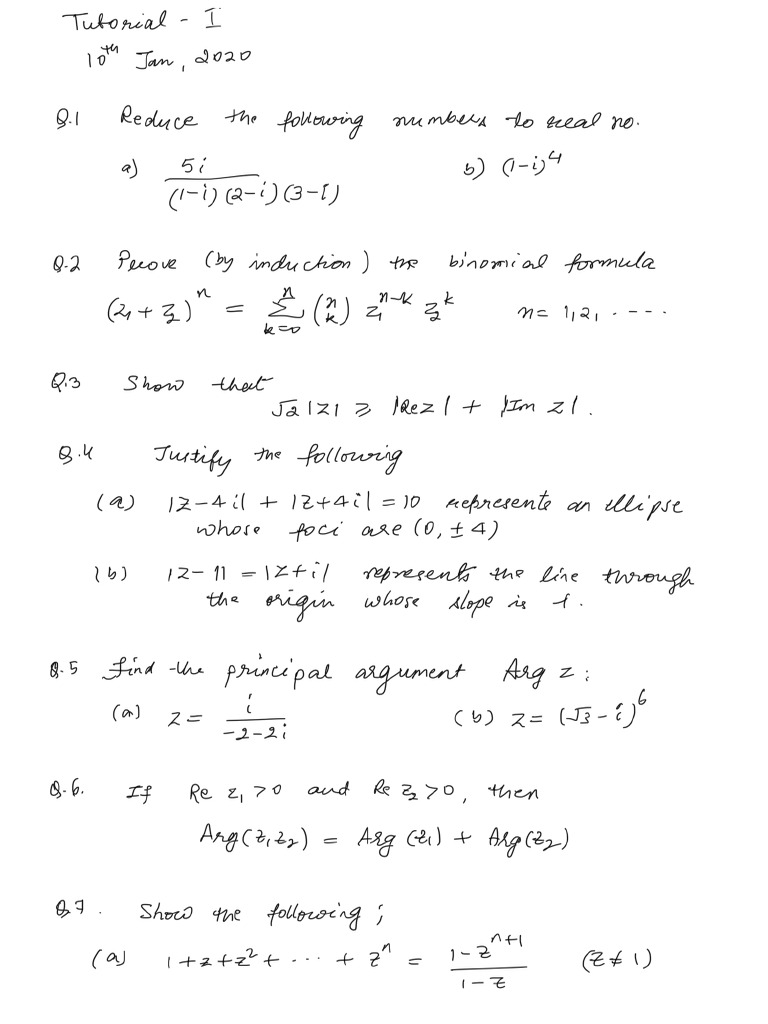 Tutorial - I
10th Jan, 2020
Q.1 Reduce the following numbers to real no.
a) 5i / (1-i) (2-i) (3-i) b) (1-i)^4
Q.2 Prove (by induction) the binomial formula
(z₁ + z₂)^n = Σ_{k=0}^{n} (n k) z₁^{n-k} z₂^k n = 1, 2, . - - -
Q.3 Show that
√2 |z| ≥ |Re z| + |Im z|.
Q.4 Justify the following
(a) |z-4i| + |z+4i| = 10 represents an ellipse
whose foci are (0, ±4)
(b) |z-1| = |z+i| represents the line through
the origin whose slope is -1.
Q.5 Find the principal argument Arg z :
(a) z = i / -2-2i (b) z = (√3 - i)^6
Q.6. If Re z₁ > 0 and Re z₂ > 0, then
Arg(z₁z₂) = Arg (z₁) + Arg(z₂)
Q7. Show the following ;
(a) 1 + z + z² + ... + z^n = 1 - z^{n+1} / 1 - z (z ≠ 1)